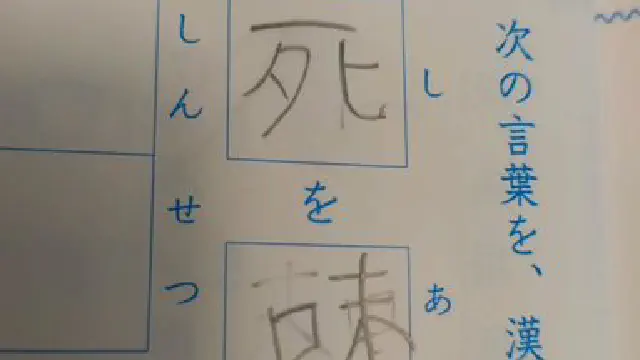 次の言葉を、漢
し
死を
あ
しんせつ